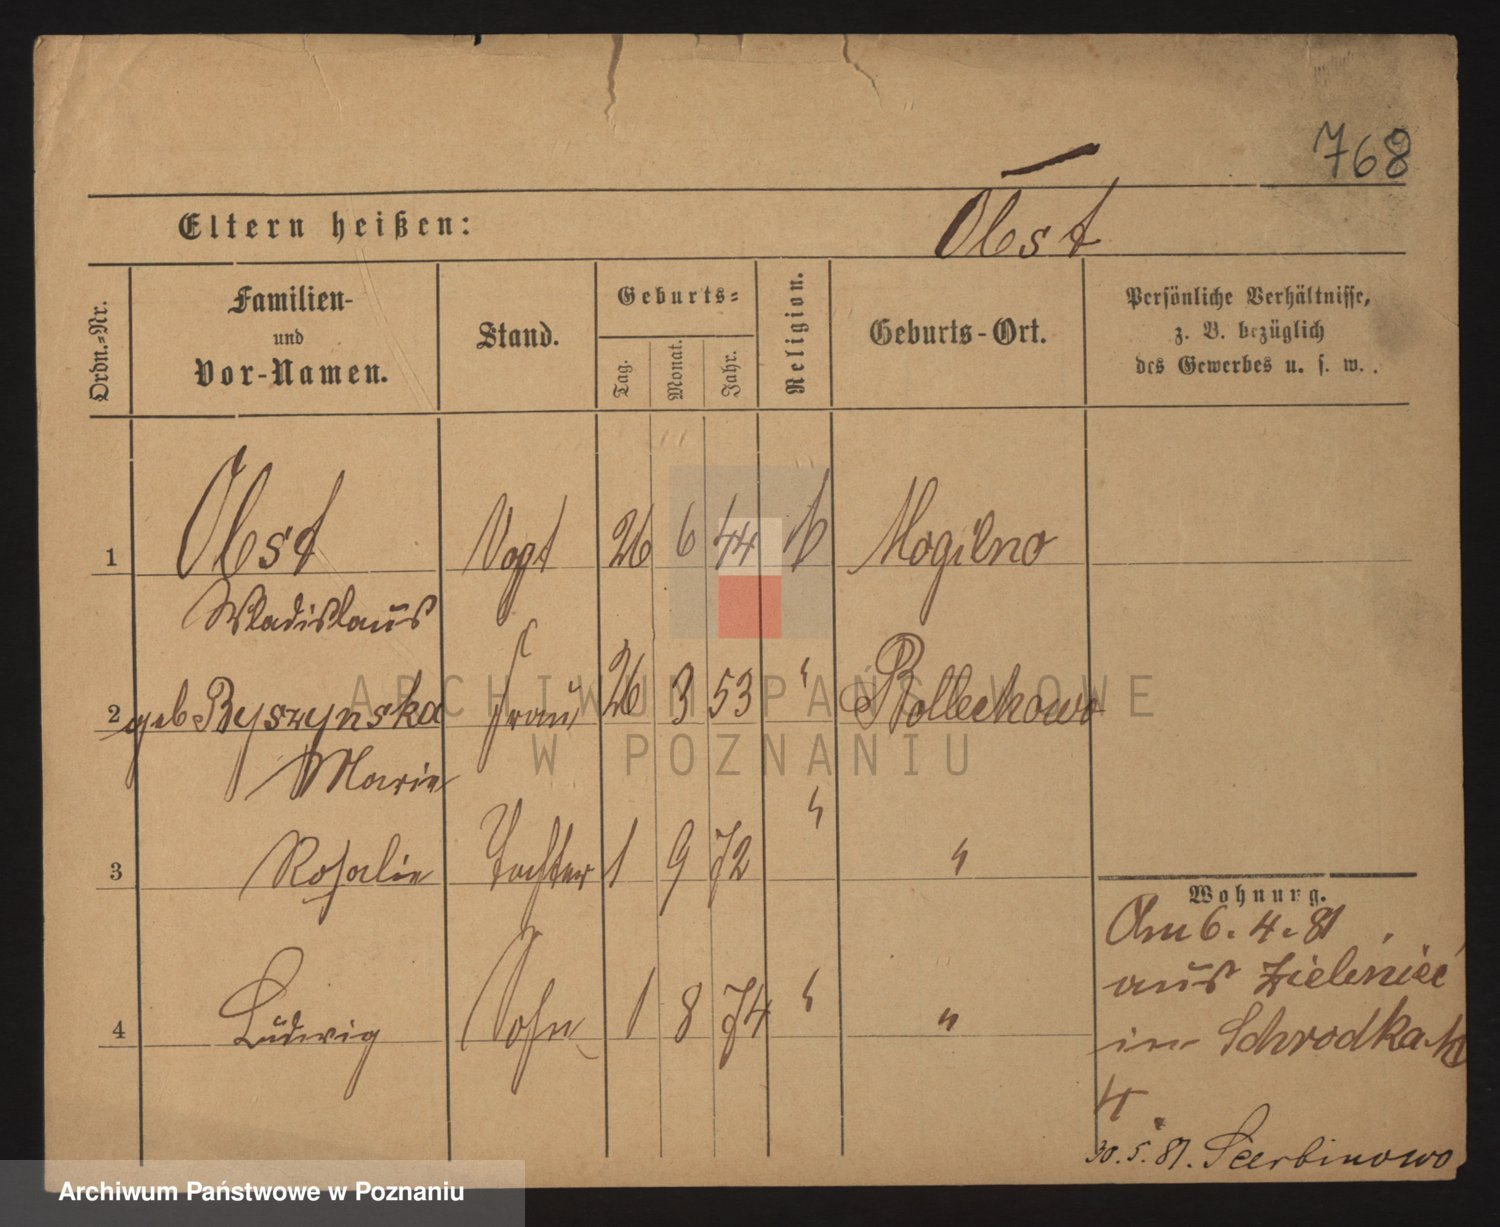 768
Eltern heißen: Obst
Ordn.-Nr. Familien- und Vor-Namen. Stand. Geburts- Tag. Monat. Jahr. Religion. Geburts-Ort. Persönliche Verhältnisse, z. B. bezüglich des Gewerbes u. s. w.
1 Obst Vogt 26 6 44 k Mogilno
Wladislaus
2 geb Byszynska Frau 26 3 53 " Bollechowo
Marie
3 Rosalie Tochter 1 9 72 " "
4 Ludwig Sohn 1 8 74 " "
Wohnung.
Am 6. 4. 81
aus Zieleniec
in Schrodka
4.
30. 5. 81. Scerbinowo
ARCHIWUM PAŃSTWOWE
W POZNANIU
Archiwum Państwowe w Poznaniu